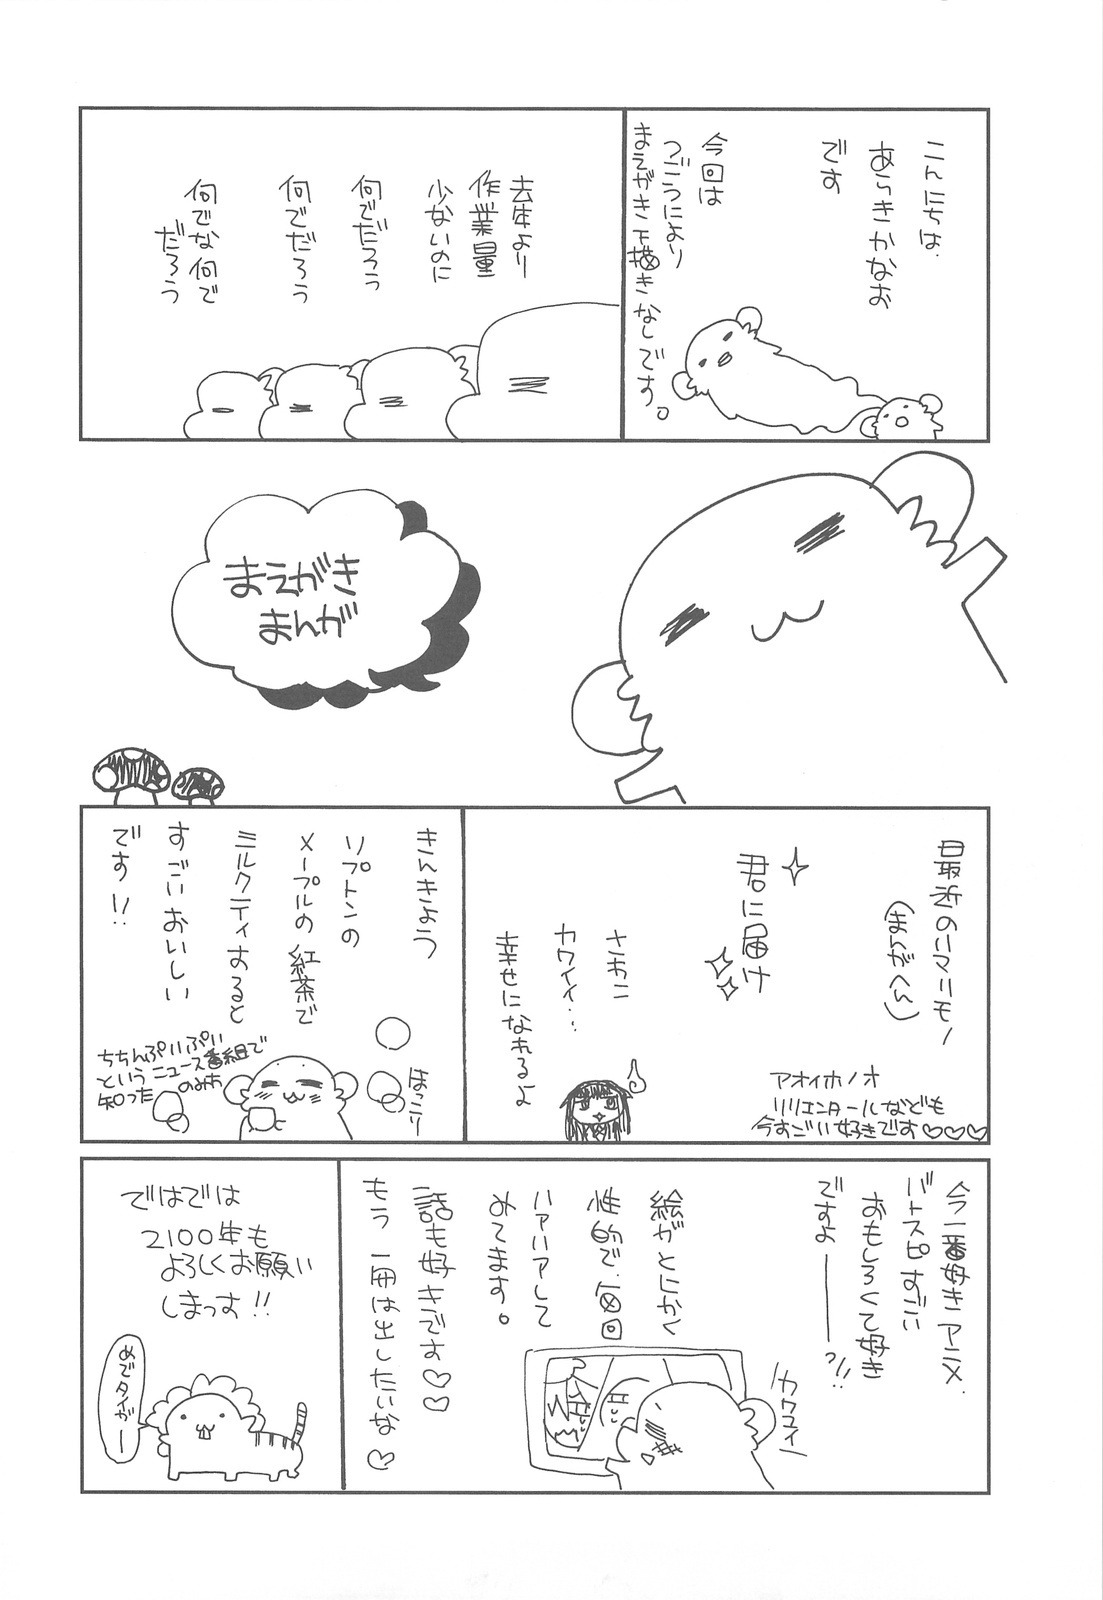 こんにちは。
あらきかなお
です
今回は
つごうにより
まえがき下描きなしです。
去年より
作業量
少ないのに
何でだろう
何でだろう
何でな何で
だろう
まえがき
まんが
最近のハマリモノ
(まんがへん)
君に届け
さわこ
カワイイ…
幸せになれるよ
アオイホノオ
リリエンタールなども
今すごい好きです♡♡♡
きんきょう
リプトンの
メープルの紅茶で
ミルクティすると
すごいおいしい
です!!
ほっこり
ちちんぷいぷい
というニュース番組で
のみわ
知った
今一番好きアニメ.
バトスピすごい
おもしろくて好き
ですよーーー?!!
絵がとにかく
性的で、毎回
ハァハァして
めてます。
カワユイー
一話も好きです♡♡
もう一冊は出したいな♡
ではでは
2100年も
よろしくお願い
しまっす!!
めでタイガー